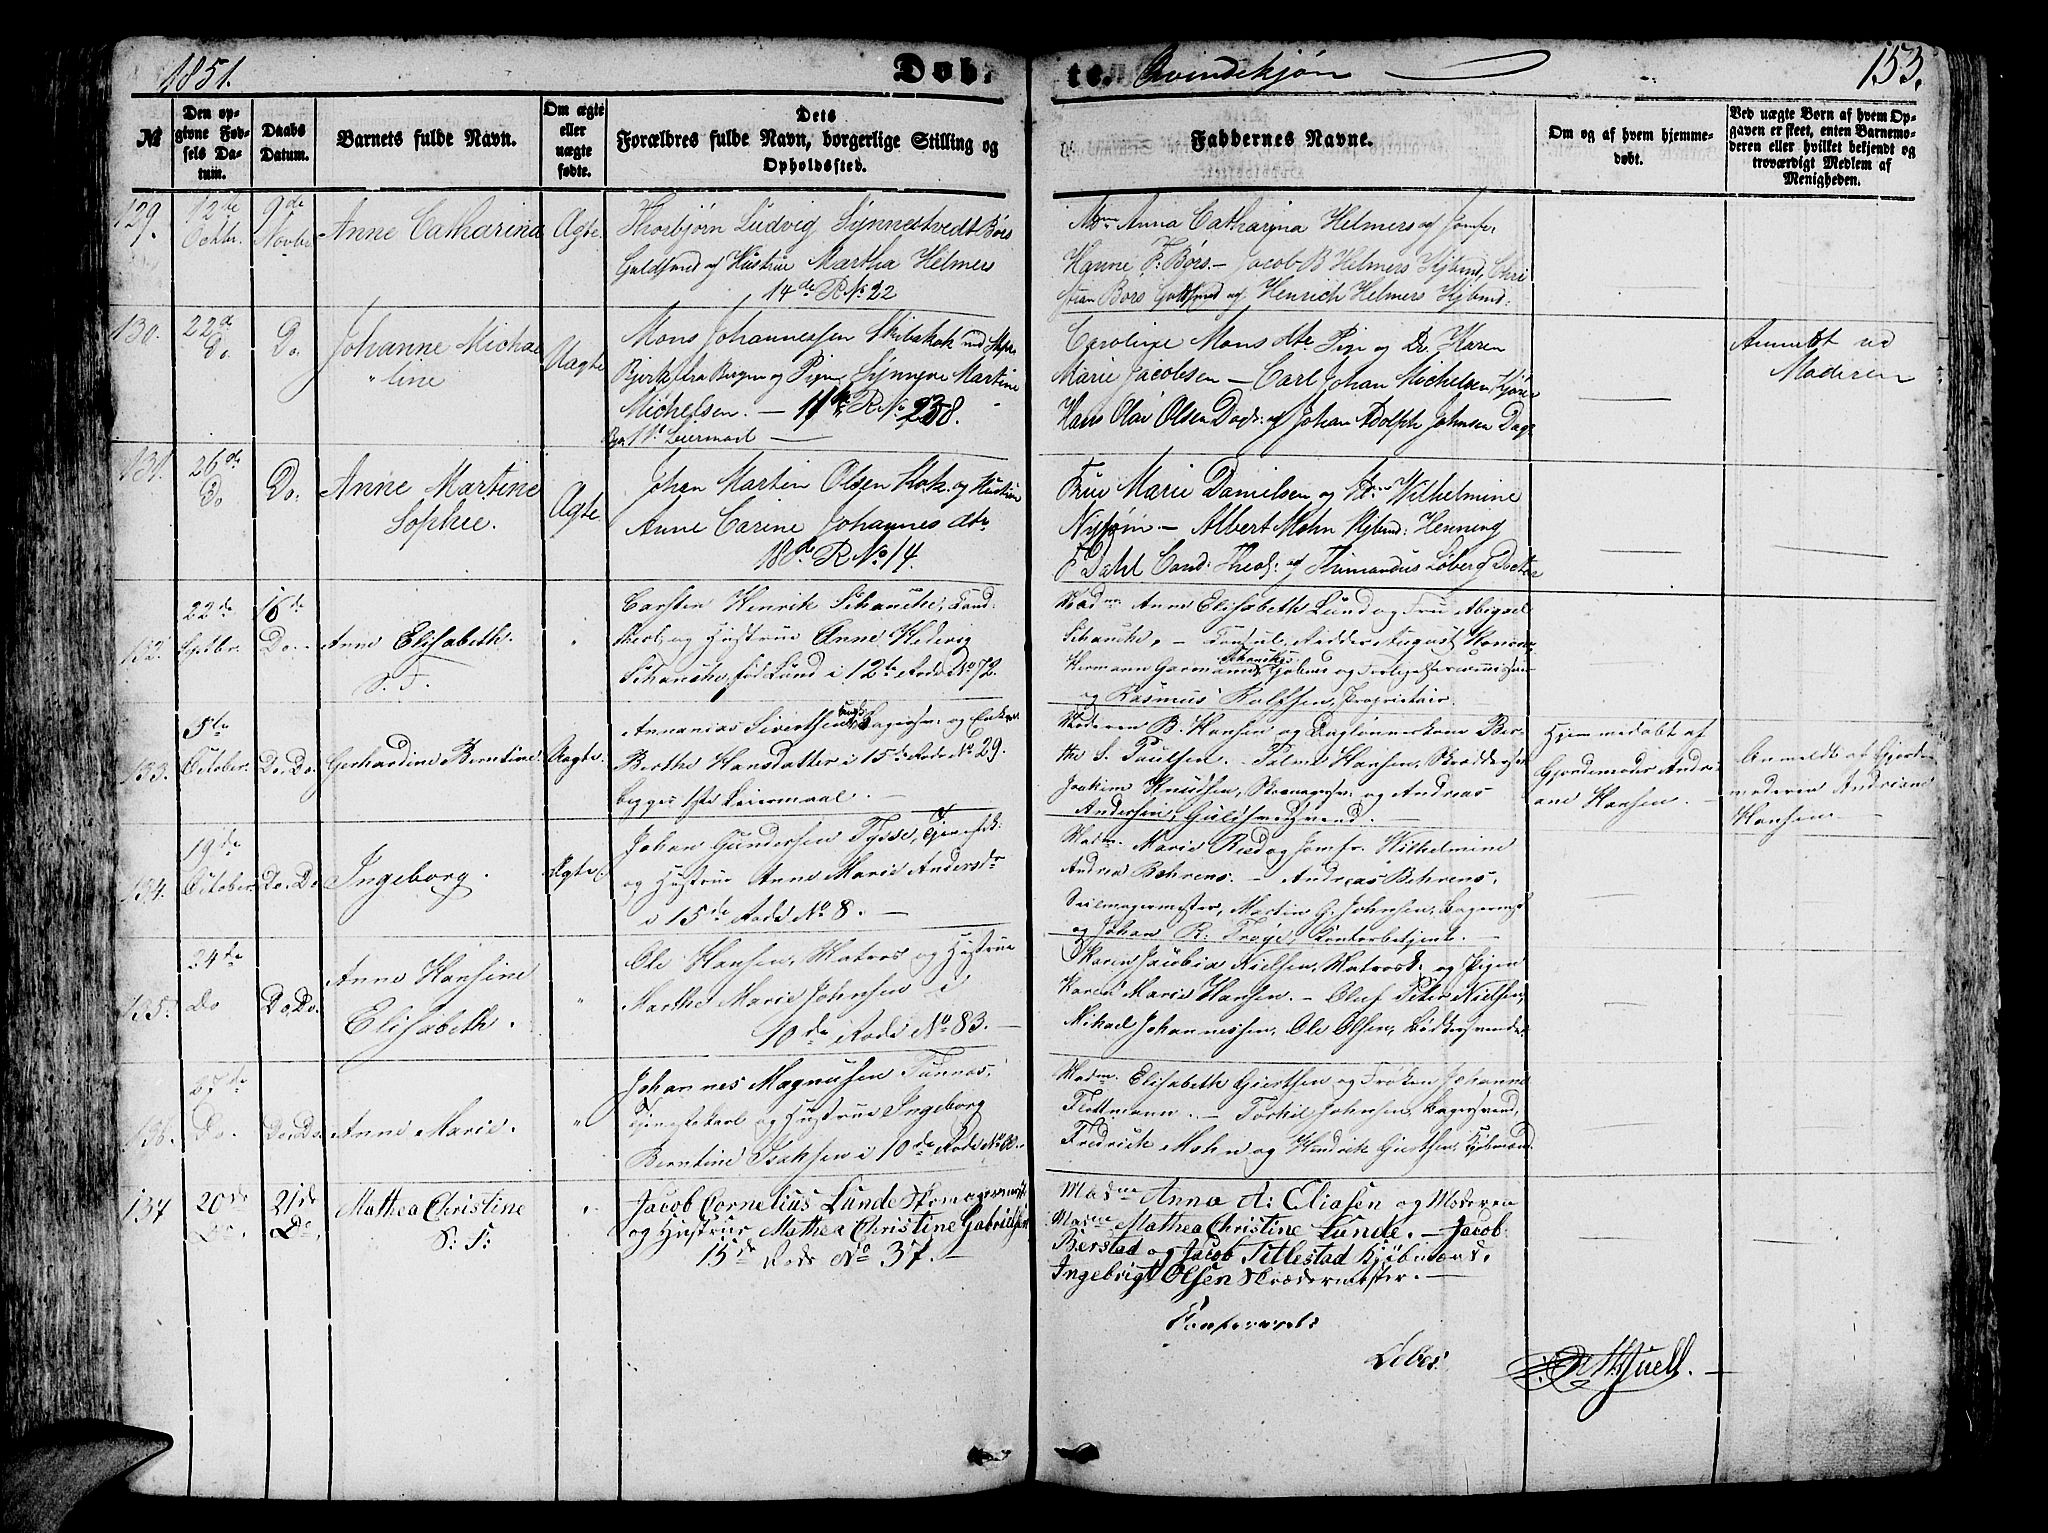 1851.
Døb-
te. Qvindekjøn
153.
№
Den op-
givne Fød-
sels Da-
tum.
Daabs
Datum.
Barnets fulde Navn.
Om ægte
eller
uægte
fødte.
Dets
Forældres fulde Navn, borgerlige Stilling og
Opholdssted.
Faddernes Navne.
Om og af hvem hjemme-
døbt.
Ved uægte Børn af hvem Op-
gaven er skeet, enten Barnemo-
deren eller hvilket bekjendt og
troværdigt Medlem af
Menigheden.
129. 12de Octbr. 9de Novbr. Anne Catharina Ægte.
Thorbjørn Ludvig Synnestvedt Børs
Guldsmed og Hustru Martha Helmers
14de R No 22
Mdm Anna Catharina Helmers og Jomfr.
Hanne F. Børs. — Jacob B Helmers Kjbmd, Chri
stian Børs Guldsmd og Henrich Helmers Kjbmd.
130. 22de Do Do. Johanne Michae
line Uægte
Mons Johannessen Skibskok
Bjork fra Bergen og Pigen Synneve Martine
Michelsen. — 11te R No 238.
1ste Leiermaal —
Caroline Mons dtr Pige og Do. Karen
Marie Jacobsen — Carl Johan Michelsen
Hans Olai Olsen Dagl: og Johan Adolph Johnsen Dagl
Anmeldt ved
Moderen
131. 26de Do Do. Anne Martine
Sophie. Ægte.
Johan Martin Olsen Kok. og Hustru
Anne Carine Johannes dtr.
18de R No 14.
Fru Marie Danielsen og Wilhelmine
— Albert Mohn Kjbmd: Henning
F Dahl Cand: Theol: og Thimandus Løberg Doctor
132. 22de Septbr. 16de Do. Anne Elisabeth.
S. F.
Carsten Henrik Schanche,
og Hustrue Anne Hedevig
Schanche, fød Lund i 12te Rode No 72.
Madm. Anne Elisabeth Lund og Fru Abigael
Schanche, — Consul, Ridder August Konow,
Hermann Garmann Schanche,
og Rasmus Rolfsen, Proprietair.
133. 5te October. Do. Do. Gerhardine Berntine. Uægte.
Annanias Sivertsen, og Enken
Berthe Hansdatter i 15de Rode No 29.
begges 1ste Leiermaal. —
Moderen B. Hansen og Daglønnerskone Ber-
the S. Paulsen. — Palme Hansen, Skræddersv.
Joakim Knudsen, Skomagersv. og Andreas
Andersen, Guldsmedsvend. —
Hjemmedøbt af
Gjordemoder Andri-
ane Hansen. —
Anmeldt af Gjorde-
moderen Andriane
Hansen. —
134. 19de October Do. Do. Ingeborg. Ægte.
Johan Gundersen Tysse, Tjenestk:
og Hustrue Anne Marie Andersdr
i 15de Rode No 8. —
Madm. Marie Risd og Jomfr. Wilhelmine
Andrea Behrens. — Andreas Behrens,
Seilmagermester, Martin G. Johnsen, Bagersv.
og Johan R: Trøye, Kontorbetjent. —
135. 24de Do Do. Do. Anne Hansine
Elisabeth. "
Ole Hansen, Matros og Hustrue
Marthe Marie Johnsen i
10de Rode No 83. —
Karen Jacobia Nielsen, Matrosk. og Pigen
Karen Marie Hansen. — Oluf Peter Nielsen,
Mikael Johannessen, Ole Olsen, Bødkersvende.
136. 27de Do. Do. Do. Anne Marie. "
Johannes Magnusen Tunnes,
Tjenestekarl og Hustrue Ingeborg
Berntine Isaksen i 10de Rode No 60.
Madm. Elisabeth Giertsen og Frøken Johanne
Flottmann. — Torkil Johnsen, Bagersvend,
Fredrick Mohn og Hendrik Giertsen, Kjøbmænd.
137 20de Do. 21de Do Mathea Christine
S. F. "
Jacob Cornelius Lunde Skomagermester
og Hustrue Mathea Christine Gabrielsen
15de Rode No 37. —
Madme Anna A: Eliasen og Moderen
Madme Mathea Christine Lunde. — Jacob
Berstad og Jacob Titlestad Kjøbmænd.
Ingebrigt Olsen Skrædermester. —
Confereret